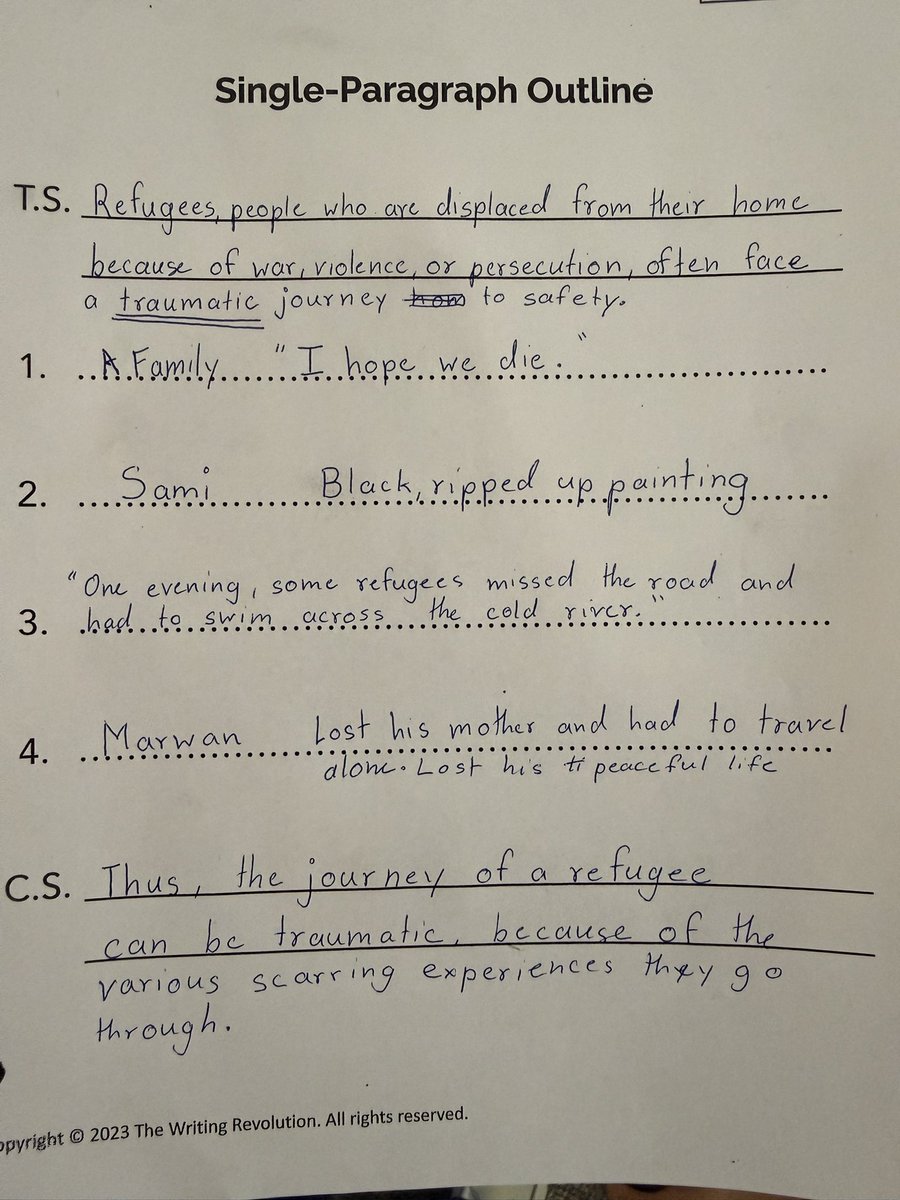 Single-Paragraph Outline
T.S. Refugees, people who are displaced from their home
because of war, violence, or persecution, often face
a traumatic journey to safety.
1. A Family "I hope we die."
2. Sami Black, ripped up painting
"One evening, some refugees missed the road and
3. had to swim across the cold river."
4. Marwan Lost his mother and had to travel
alone. Lost his peaceful life
C.S. Thus, the journey of a refugee
can be traumatic, because of the
various scarring experiences they go
through.
opyright © 2023 The Writing Revolution. All rights reserved.